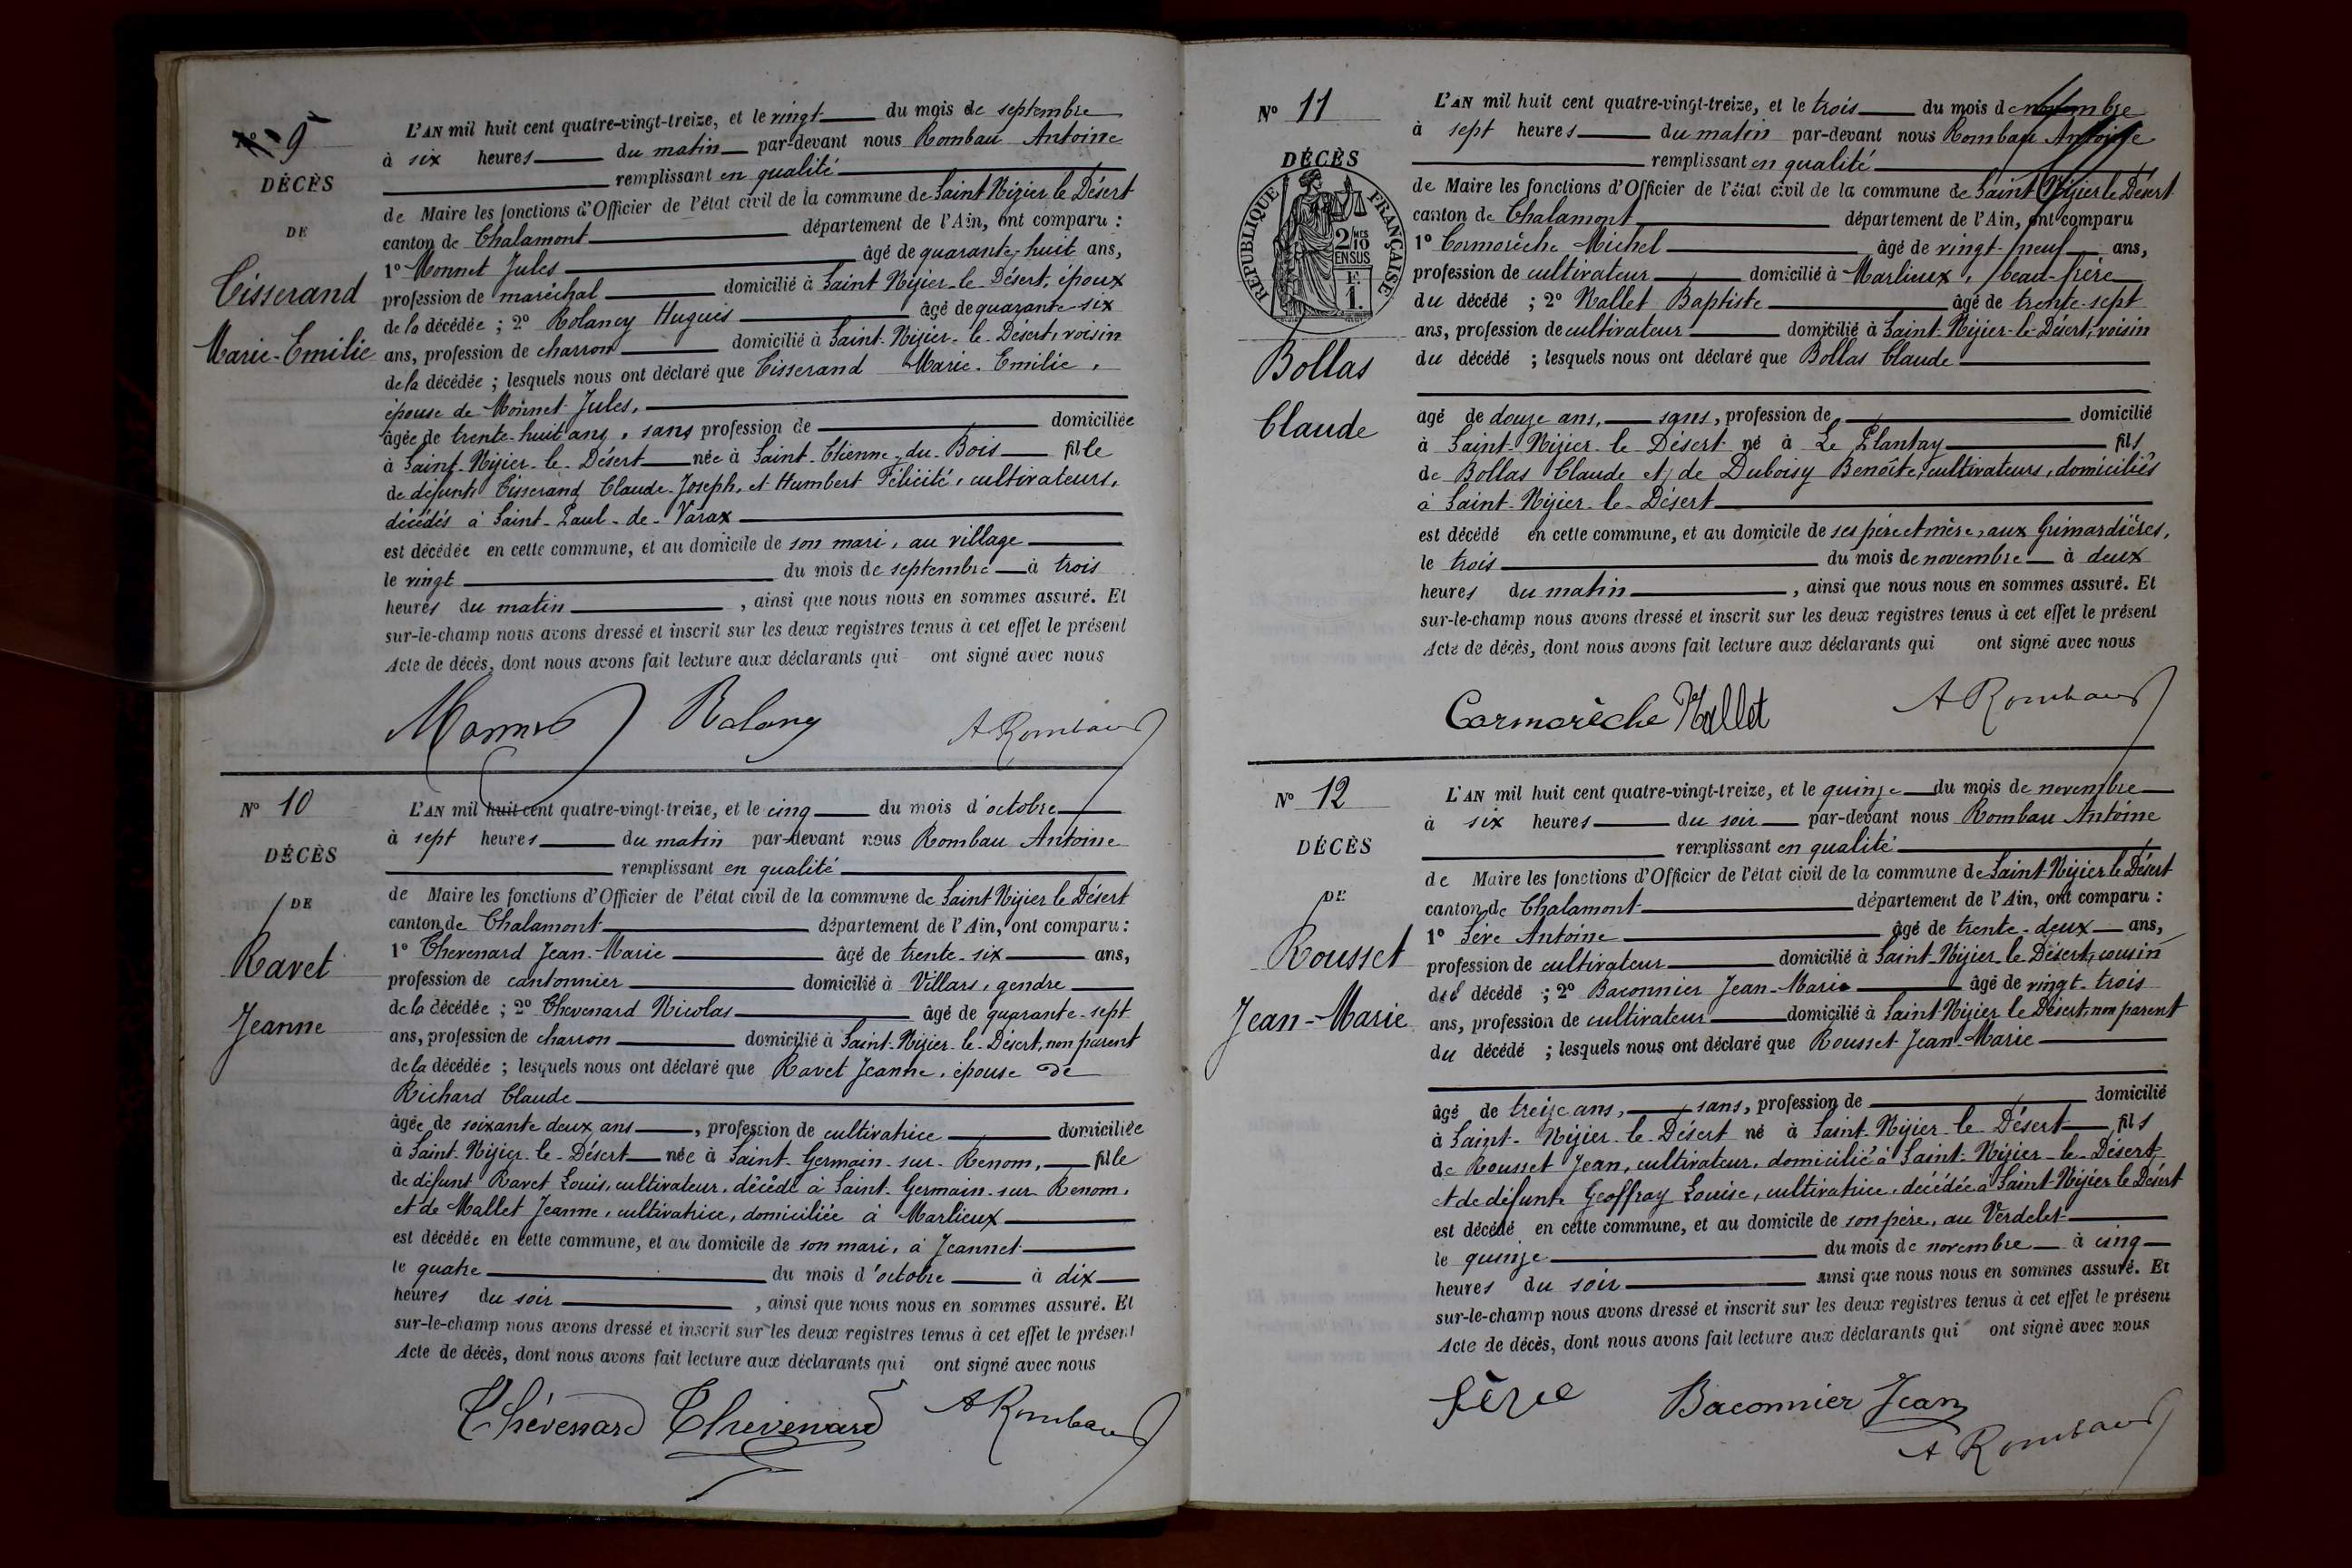 N° 9
DÉCÈS
DE
Tisserand
Marie-Emilie
L'AN mil huit cent quatre-vingt-treize, et le vingt du mois de septembre
à six heures du matin par-devant nous Rombau Antoine
remplissant en qualité
de Maire les fonctions d'Officier de l'état civil de la commune de Saint Nizier le Désert
canton de Chalamont département de l'Ain, ont comparu :
1° Monnet Jules âgé de quarante-huit ans,
profession de maréchal domicilié à Saint Nizier-le-Désert, époux
de la décédée ; 2° Rolancy Hugues âgé de quarante-six
ans, profession de charron domicilié à Saint-Nizier-le-Désert, voisin
de la décédée ; lesquels nous ont déclaré que Tisserand Marie-Emilie,
épouse de Monnet Jules,
âgée de trente-huit ans, sans profession de domiciliée
à Saint-Nizier-le-Désert née à Saint-Etienne-du-Bois fille
de défunts Tisserand Claude-Joseph, et Humbert Félicité, cultivateurs,
décédés à Saint-Paul-de-Varax
est décédée en cette commune, et au domicile de son mari, au village
le vingt du mois de septembre à trois
heures du matin , ainsi que nous nous en sommes assuré. Et
sur-le-champ nous avons dressé et inscrit sur les deux registres tenus à cet effet le présent
Acte de décès, dont nous avons fait lecture aux déclarants qui ont signé avec nous
Monnet Rolany A Rombaud
N° 10
DÉCÈS
DE
Ravet
Jeanne
L'AN mil huit cent quatre-vingt-treize, et le cinq du mois d'octobre
à sept heures du matin par-devant nous Rombau Antoine
remplissant en qualité
de Maire les fonctions d'Officier de l'état civil de la commune de Saint Nizier le Désert
canton de Chalamont département de l'Ain, ont comparu :
1° Thevenard Jean-Marie âgé de trente-six ans,
profession de cantonnier domicilié à Villars, gendre
de la décédée ; 2° Thevenard Nicolas âgé de quarante-sept
ans, profession de charron domicilié à Saint-Nizier-le-Désert, non parent
de la décédée ; lesquels nous ont déclaré que Ravet Jeanne, épouse de
Richard Claude
âgée de soixante deux ans , profession de cultivatrice domiciliée
à Saint-Nizier-le-Désert née à Saint-Germain-sur-Renom, fille
de défunt Ravet Louis, cultivateur, décédé à Saint-Germain-sur-Renom,
et de Mallet Jeanne, cultivatrice, domiciliée à Marlieux
est décédée en cette commune, et au domicile de son mari, à Jeannet
le quatre du mois d'octobre à dix
heures du soir , ainsi que nous nous en sommes assuré. Et
sur-le-champ nous avons dressé et inscrit sur les deux registres tenus à cet effet le présent
Acte de décès, dont nous avons fait lecture aux déclarants qui ont signé avec nous
Thévenard Thevenard A Rombaud
N° 11
DÉCÈS
RÉPUBLIQUE FRANÇAISE
2/10 MES
EN SUS
F.
1.
Bollas
Claude
L'AN mil huit cent quatre-vingt-treize, et le trois du mois de novembre
à sept heures du matin par-devant nous Rombau Antoine
remplissant en qualité
de Maire les fonctions d'Officier de l'état civil de la commune de Saint Nizier le Désert
canton de Chalamont département de l'Ain, ont comparu
1° Cormorèche Michel âgé de vingt-neuf ans,
profession de cultivateur domicilié à Marlieux, beau-frère
du décédé ; 2° Nallet Baptiste âgé de trente-sept
ans, profession de cultivateur domicilié à Saint-Nizier-le-Désert, voisin
du décédé ; lesquels nous ont déclaré que Bollas Claude
agé de douze ans, sans, profession de domicilié
à Saint-Nizier-le-Désert né à Le Plantay fils
de Bollas Claude et de Duboisy Benoîte, cultivateurs, domiciliés
à Saint-Nizier-le-Désert
est décédé en cette commune, et au domicile de ses père et mère, aux Grimardières,
le trois du mois de novembre à deux
heures du matin , ainsi que nous nous en sommes assuré. Et
sur-le-champ nous avons dressé et inscrit sur les deux registres tenus à cet effet le présent
Acte de décès, dont nous avons fait lecture aux déclarants qui ont signé avec nous
Cormorèche Nallet A Rombaud
N° 12
DÉCÈS
DE
Rousset
Jean-Marie
L'AN mil huit cent quatre-vingt-treize, et le quinze du mois de novembre
à six heures du soir par-devant nous Rombau Antoine
remplissant en qualité
de Maire les fonctions d'Officier de l'état civil de la commune de Saint-Nizier le Désert
canton de Chalamont département de l'Ain, ont comparu :
1° Sève Antoine âgé de trente-deux ans,
profession de cultivateur domicilié à Saint-Nizier-le-Désert, cousin
du décédé ; 2° Baconnier Jean-Marie âgé de vingt-trois
ans, profession de cultivateur domicilié à Saint-Nizier le Désert, non parent
du décédé ; lesquels nous ont déclaré que Rousset Jean-Marie
âgé de treize ans, sans, profession de domicilié
à Saint-Nizier-le-Désert né à Saint-Nizier-le Désert fils
de Rousset Jean, cultivateur, domicilié à Saint-Nizier-le-Désert,
et de défunte Geoffray Louise, cultivatrice, décédée à Saint-Nizier le Désert
est décédé en cette commune, et au domicile de son père, au Verdelet
le quinze du mois de novembre à cinq
heures du soir ainsi que nous nous en sommes assuré. Et
sur-le-champ nous avons dressé et inscrit sur les deux registres tenus à cet effet le présent
Acte de décès, dont nous avons fait lecture aux déclarants qui ont signé avec nous
Sève Baconnier Jean
A Rombaud